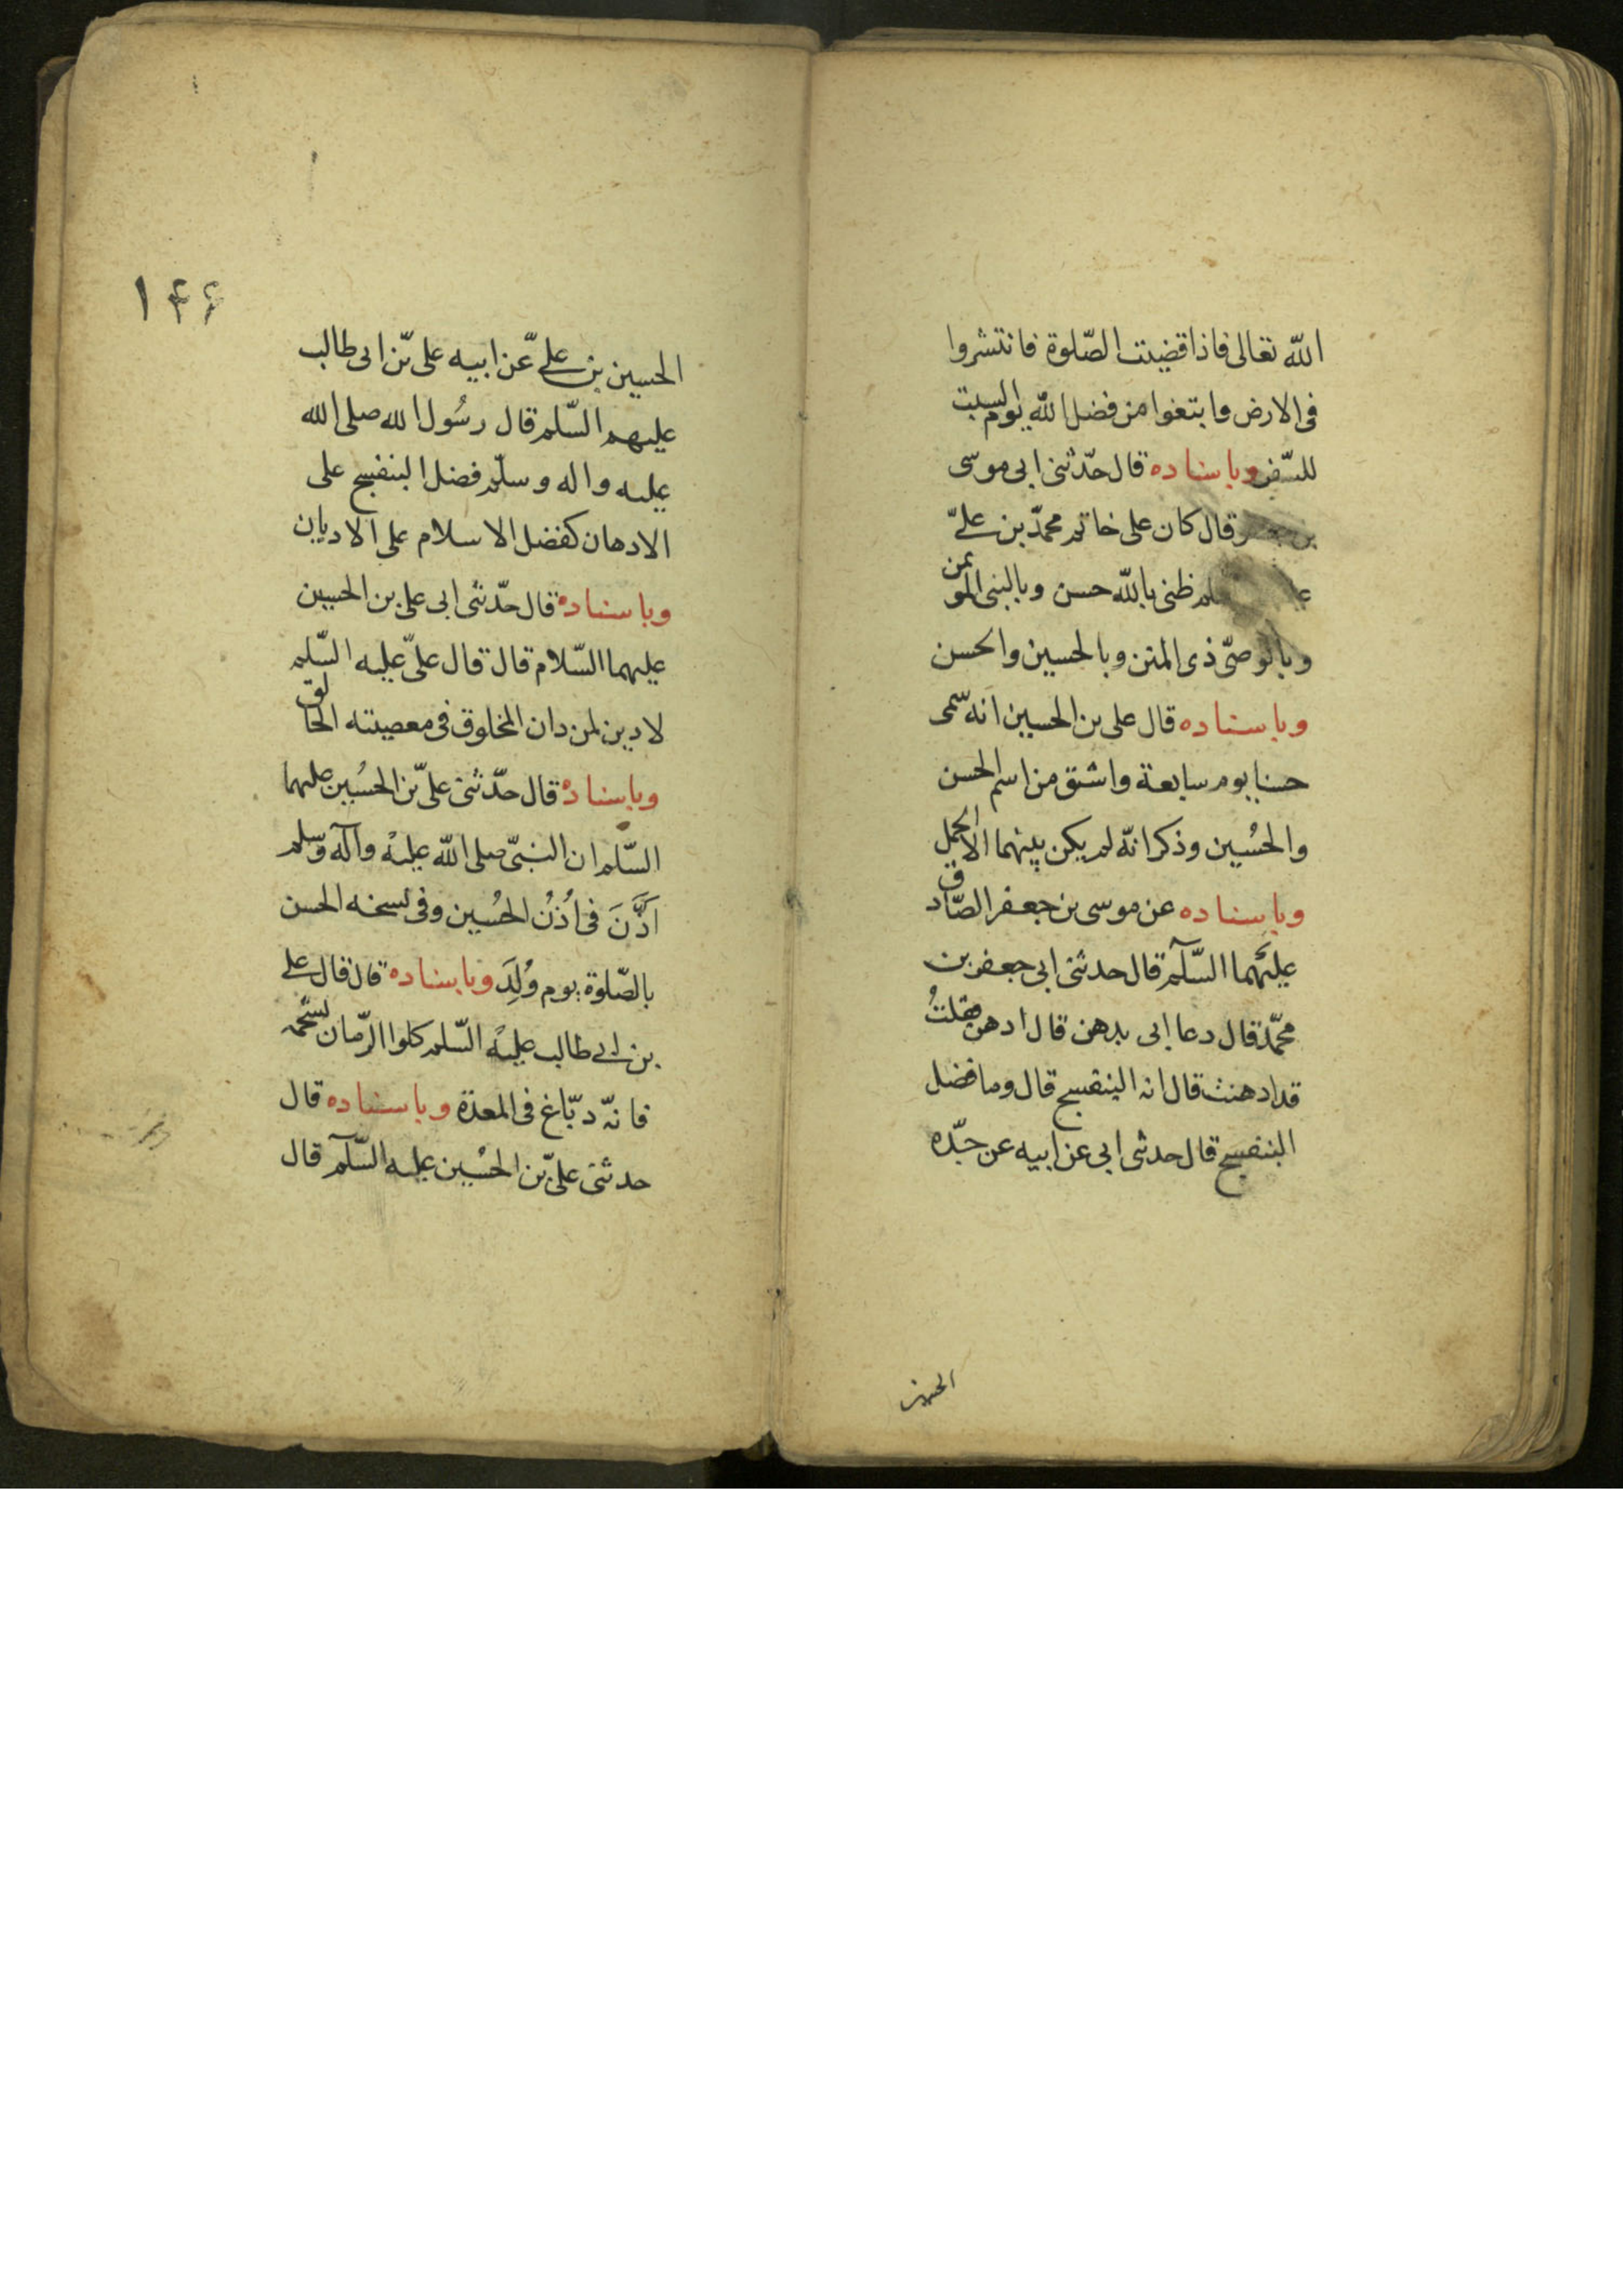 الله تعالى فاذا قضيت الصّلوة فانتشروا
فى الارض وابتغوا من فضل الله يوم السبت
للسّفر وباسناده قال حدّثنى ابى موسى
بن جعفر قال كان على خاتم محمّد بن علىّ
ظنى بالله حسن وبالنبى الموتمن
وبالوصىّ ذى المنن وبالحسين والحسن
وباسناده قال على بن الحسين انه سمى
حسنا يوم سابعة واشتق من اسم الحسن
والحسُين وذكر انّه لم يكن بينهما الا الحمل
وباسناده عن موسى بن جعفر الصّادق
عليهما السّلم قال حدثنى ابى جعفر بن
محمّد قال دعا ابى بدهن قال ادهن فقلتُ
قد ادهنت قال انه البنفسج قال وما فضل
البنفسج قال حدثى ابى عن ابيه عن جدّه
الحسين
١۴۶
الحسين بن علىّ عن ابيه على بّن ابى طالب
عليهم السّلم قال رسُول الله صلى الله
عليه واله وسلّم فضل البنفسج على
الادهان كفضل الاسلام على الاديان
وباسناده قال حدّثنى ابى على بن الحسين
عليهما السّلام قال قال علىّ عليه السّلم
لا دين لمن دان المخلوق فى معصيته الخالق
وباسناده قال حدّثنى علىّ بن الحسُين عليهما
السّلم ان النبىّ صلى الله عليهْ وآله وسلم
اَذَّنَ فى اُذُنُ الحسُين وفى نسخه الحسن
بالصّلوة يوم وُلِدَ وباسناده قال قال على
بن ابى طالب عليهْ السّلم كلوا الرّمان بشحمه
فانّه دبّاغ فى المعدة وباسناده قال
حدثنى علىّ بن الحسُين عليه السّلم قال